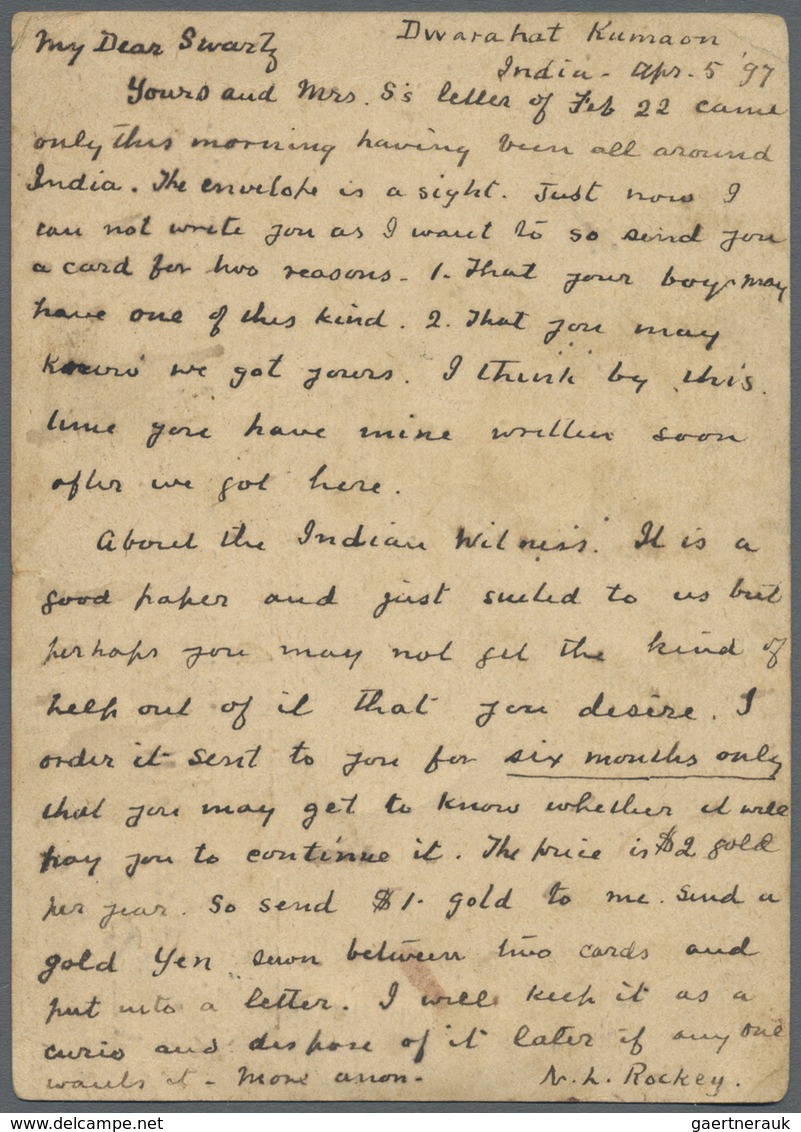 Dwarahat Kumaon
My Dear Swartz
India - Apr. 5 '97
Yours and Mrs. S's letter of Feb 22 came
only this morning having been all around
India. The envelope is a sight. Just now I
can not write you as I want to so send you
a card for two reasons - 1. That your boys may
have one of this kind. 2. That you may
know we got yours. I think by this
time you have mine written soon
after we got here.
About the Indian Witness. It is a
good paper and just suited to us but
perhaps you may not get the kind of
help out of it that you desire. I
order it sent to you for six months only
that you may get to know whether it will
pay you to continue it. The price is $2 gold
per year. So send $1. gold to me. Send a
gold Yen sewn between two cards and
put into a letter. I will keep it as a
curio and dispose of it later if any one
wants it - More anon -
N. L. Rockey.
delcampe.net
gaertnerauk